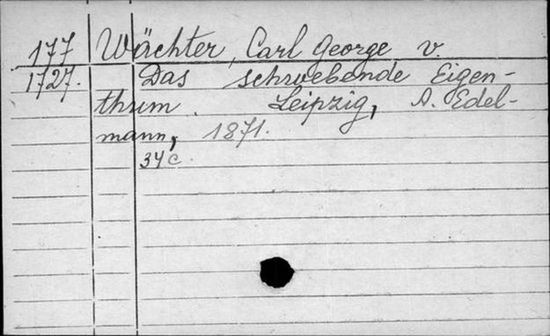 177 Wächter, Carl George v.
1727. Das schwebende Eigen-
thum. Leipzig, A. Edel-
mann, 1871.
34 c.